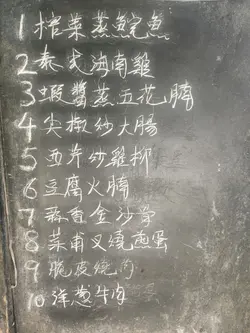 1 榨菜蒸鯇魚
2 泰式海南雞
3 蝦醬蒸五花腩
4 尖椒炒大腸
5 西芹炒雞柳
6 豆腐火腩
7 蒜香金沙骨
8 菜甫叉燒煎蛋
9 脆皮燒肉
10 洋葱牛肉